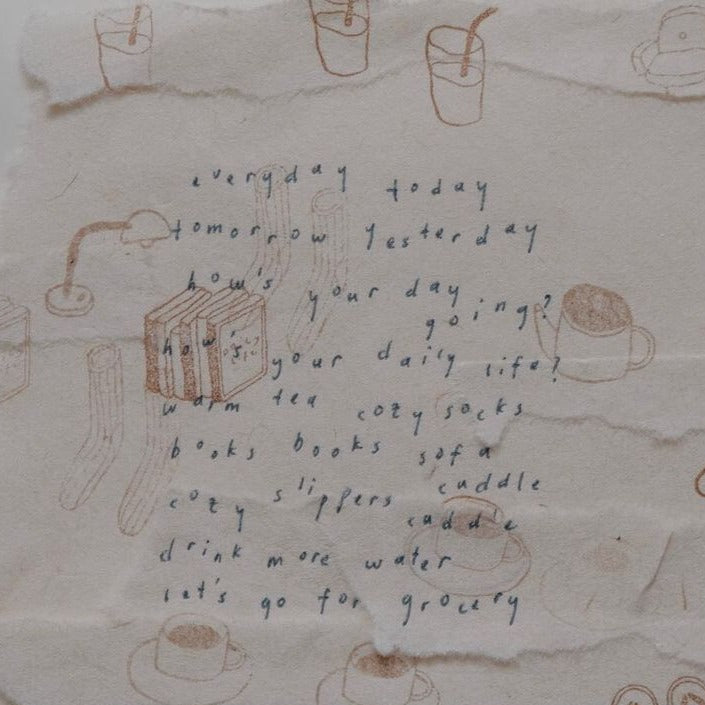 everyday today
tomorrow yesterday
how's your day going?
how's your daily life?
warm tea cozy socks
books books sofa
cozy slippers cuddle
cuddle
drink more water
let's go for grocery